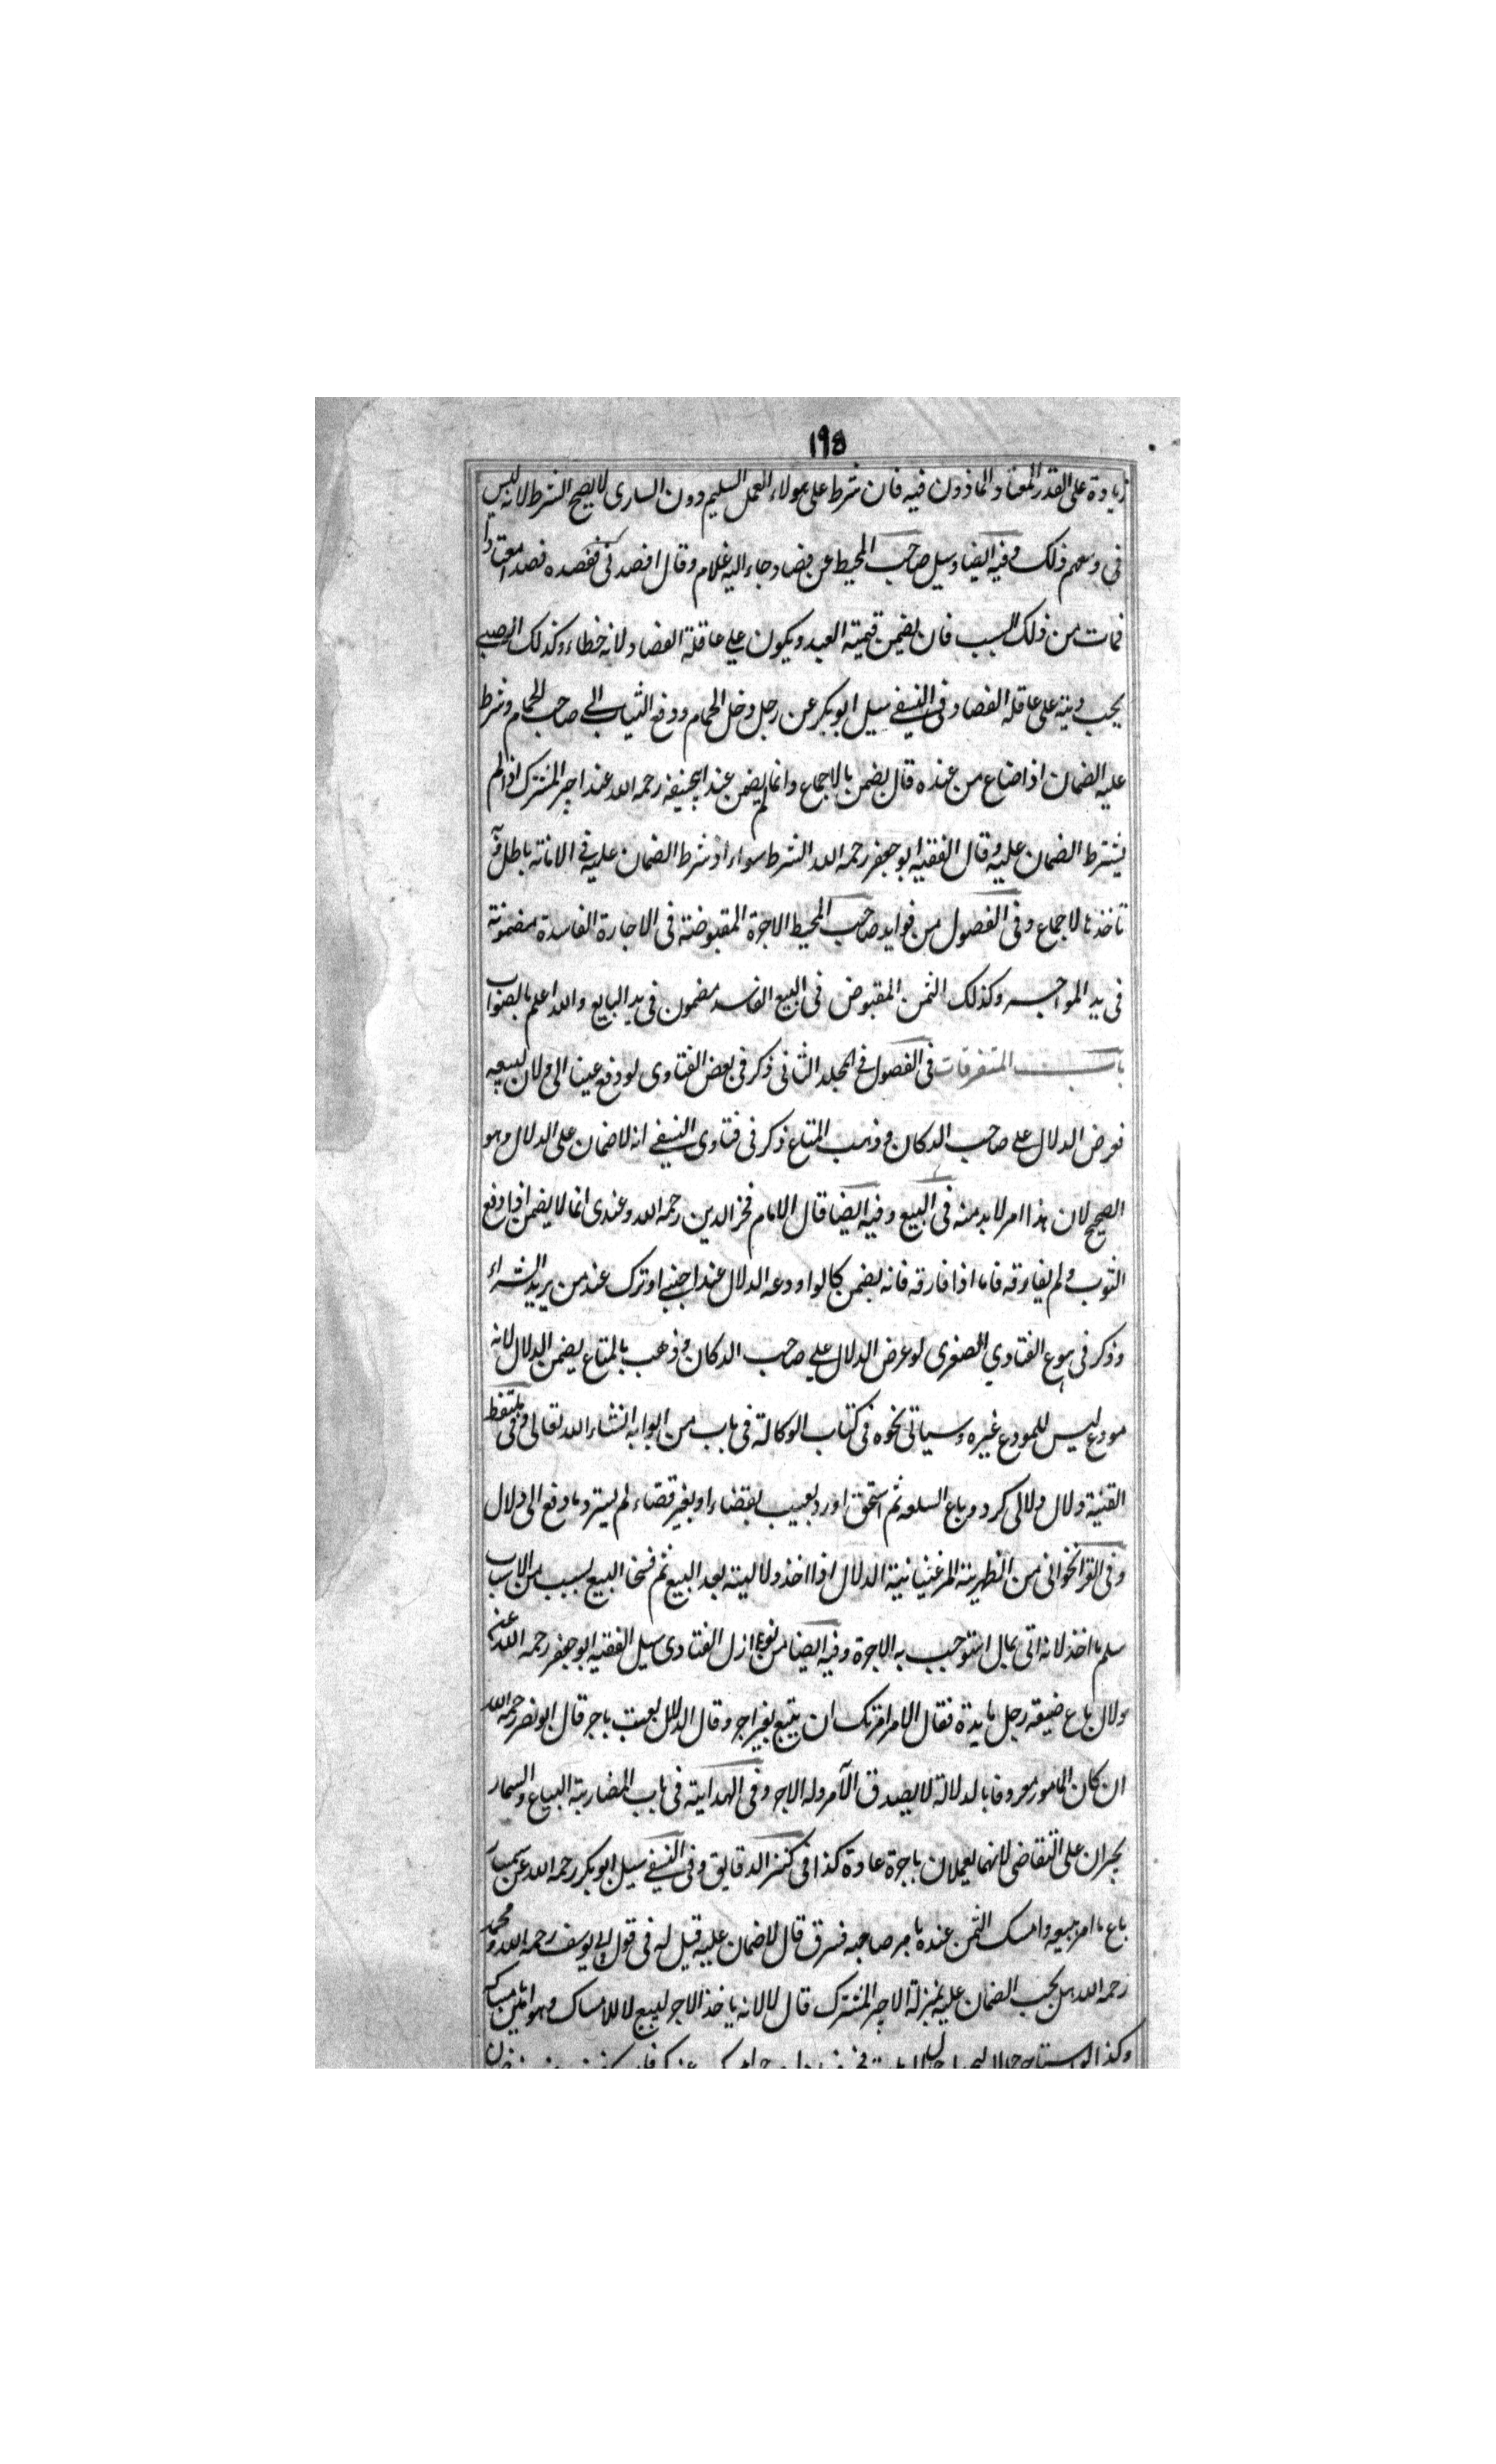 ١٩٥
زيادة على القدر المعتاد والماذون فيه فان شرط على هولاء العمل السليم دون السارى لا يصح الشرط لانه ليس
فى وسعهم ذلك وفيه ايضا وسيل صاحب المحيط عن فصاد جاء اليه غلام وقال افصدنى ففصده فصدا معتادا
فمات من ذلك السبب فان يضمن قيمة العبد ويكون على عاقلة الفصاد لانه خطاء وكذلك الصبى
يجب ديته على عاقلة الفصاد وفى النسفى سيل ابوبكر عن رجل دخل الحمام ودفع الثياب الى صاحب الحمام وشرط
عليه الضمان اذا ضاع من عنده قال يضمن بالاجماع وانما لم يضمن عند ابيحنيفة رحمه الله عند اجير المشترك اذا لم
يشترط الضمان عليه وقال الفقيه ابو جعفر رحمه الله الشرط سواء اذ شرط الضمان عليه فى الامانة باطل وبه
تاخذ بالاجماع وفى الفصول من فوايد صاحب المحيط الاجرة المقبوضة فى الاجارة الفاسدة مضمونة
فى يد المواجر وكذلك الثمن المقبوض فى البيع الفاسد مضمون فى يد البايع والله اعلم بالصواب
باب المتفرقات فى الفصول فى المجلد الثانى ذكر فى بعض الفتاوى لو دفع عينا الى دلال ليبيعه
فعرض الدلال على صاحب الدكان وذهب المتاع ذكر فى فتاوى النسفى انه لا ضمان على الدلال وهو
الصحيح لان هذا امر لا بد منه فى البيع وفيه ايضا قال الامام فخر الدين رحمه الله وعندى انما لا يضمن اذا دفع
الثوب ولم يفارقه فاما اذا فارقه فانه يضمن كما لو اودعه الدلال عند اجنبى او ترك عند من يريد الشراء
وذكر فى بيوع الفتاوي الصغرى لو عرض الدلال على صاحب الدكان وذهب بالمتاع يضمن الدلال لانه
مودع ليس للمودع غيره وسياتى نحوه فى كتاب الوكالة فى باب من ابوابه انشاء الله تعالى وفى ملتقط
القنية دلال دلالى كرد و باع السلعه ثم استحق او رد بعيب بقضاء او بغير قضاء لم يسترد ما دفع الى دلال
وفى القراخوانى من الظهيرية المرغينانية الدلال اذا اخذ دلاليته بعد البيع ثم فسخا البيع بسبب من الاسباب
سلم ما اخذ لانه اتى بمال استوجب به الاجرة وفيه ايضا من نوازل الفتاوى سيل الفقيه ابو جعفر رحمه الله عن
دلال باع ضيعة رجل بامره فقال الامر امرتك ان تبيع بغير اجر وقال الدلال بعت باجر قال ابو نصر رحمه الله
ان كان المامور معروفا بالدلالة لا يصدق الآمر وله الاجر وفى الهداية فى باب المضاربة البياع والسمسار
يجبران على التقاضى لانهما يعملان باجرة عادة كذا فى كنز الدقايق وفى النسفى سيل ابوبكر رحمه الله عن سمسار
باع ما امر ببيعه وامسك الثمن عنده بامر صاحبه فسرق قال لا ضمان عليه قيل له فى قول ابى يوسف رحمه الله ومحمد
رحمه الله هل يجب الضمان عليه بمنزلة الاجير المشترك قال لا لانه ياخذ الاجر للبيع لا للامساك وهو امين بامساكه